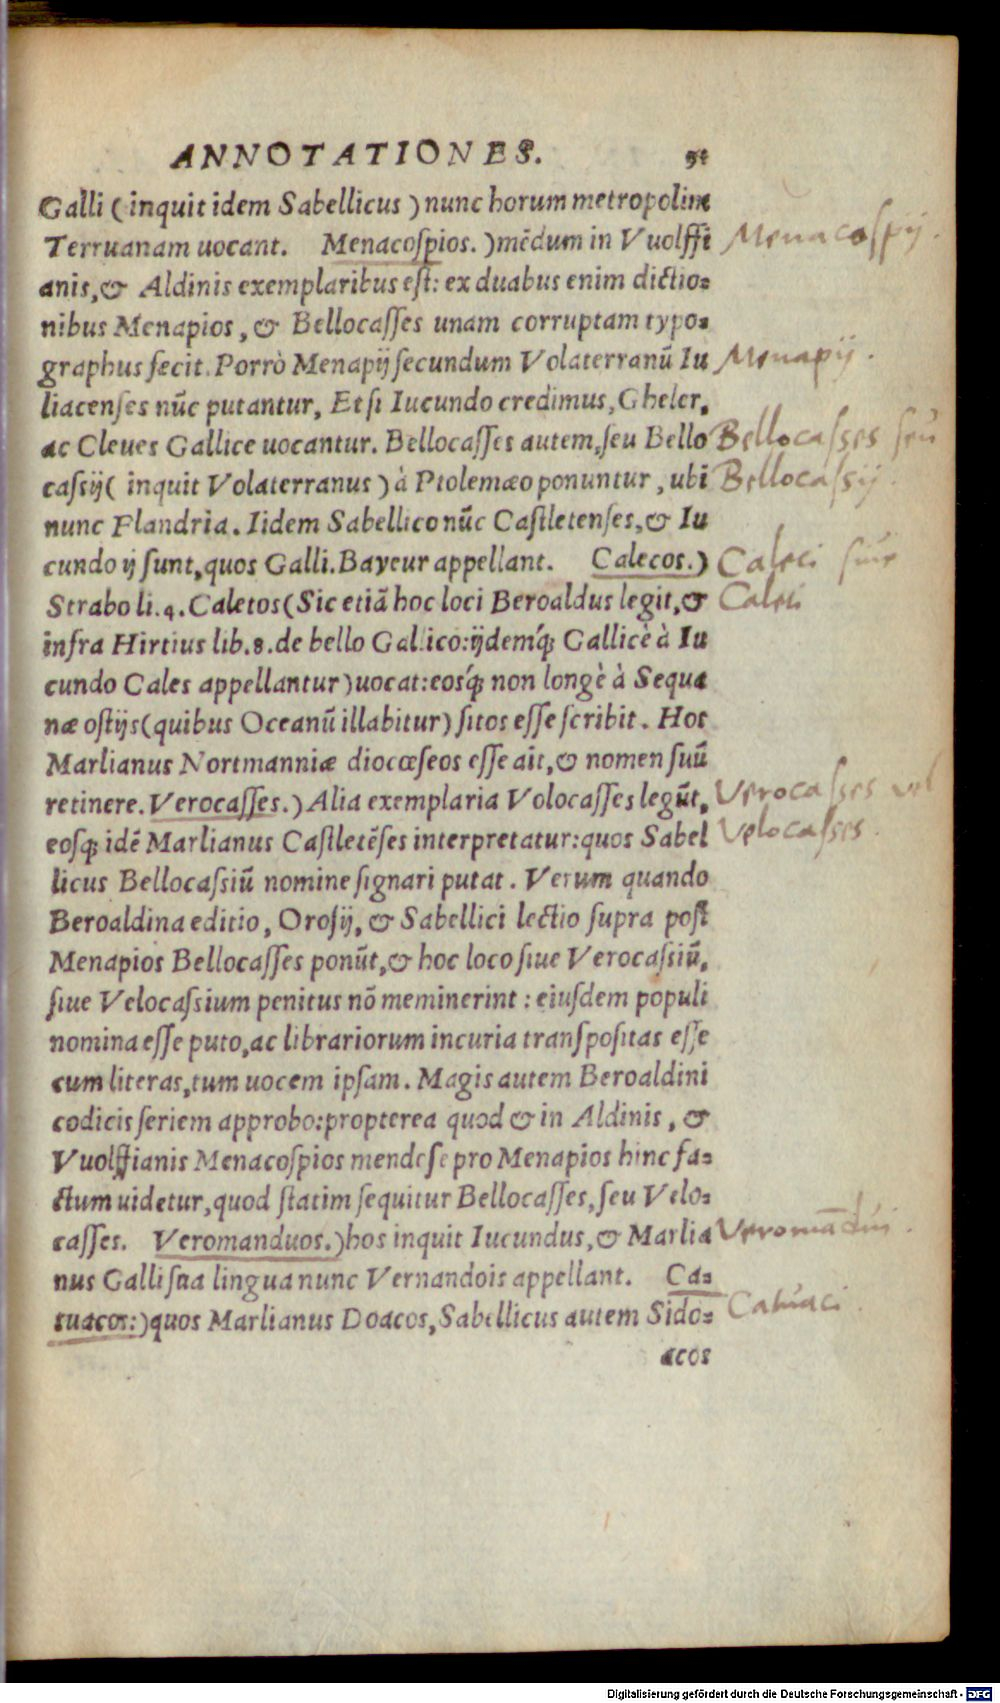 ANNOTATIONES. 91
Galli (inquit idem Sabellicus) nunc horum metropolim
Terruanam uocant. Menacospios.) mēdum in Vuolffi
anis, & Aldinis exemplaribus est: ex duabus enim dictio=
nibus Menapios, & Bellocasses unam corruptam typo=
graphus fecit. Porrò Menapij secundum Volaterranū Iu
liacenses nūc putantur, Et si Iucundo credimus, Gheler,
ac Cleues Gallice uocantur. Bellocasses autem, seu Bello
cassij (inquit Volaterranus) à Ptolemæo ponuntur, ubi
nunc Flandria. Iidem Sabellico nūc Castletenses, & Iu
cundo ij sunt, quos Galli. Bayeur appellant. Calecos.)
Strabo li. 4. Caletos (Sic etiā hoc loci Beroaldus legit, &
infra Hirtius lib. 8. de bello Gallico: ijdemq́; Gallicè à Iu
cundo Cales appellantur) uocat: eosq́; non longè à Sequa
næ ostijs (quibus Oceanū illabitur) sitos esse scribit. Hos
Marlianus Nortmanniæ diocœseos esse ait, & nomen suū
retinere. Verocasses.) Alia exemplaria Volocasses legūt,
eosq; idē Marlianus Castletēses interpretatur: quos Sabel
licus Bellocassiū nomine signari putat. Verum quando
Beroaldina editio, Orosij, & Sabellici lectio supra post
Menapios Bellocasses ponūt, & hoc loco siue Verocassiū,
siue Velocassium penitus nō meminerint: eiusdem populi
nomina esse puto, ac librariorum incuria transpositas esse
cum literas, tum uocem ipsam. Magis autem Beroaldini
codicis seriem approbo: propterea quod & in Aldinis, &
Vuolffianis Menacospios mendose pro Menapios hinc fa=
ctum uidetur, quod statim sequitur Bellocasses, seu Velo=
casses. Veromanduos.) hos inquit Iucundus, & Marlia
nus Galli sua lingua nunc Vernandois appellant. Ca=
tuacos:) quos Marlianus Doacos, Sabellicus autem Sido=
acos
Menacospij.
Menapij.
Bellocasses seu
Bellocassij.
Caleci siue
Caleti
Verocasses vel
Velocasses.
Veromādui.
Catuaci.
Digitalisierung gefördert durch die Deutsche Forschungsgemeinschaft - DFG